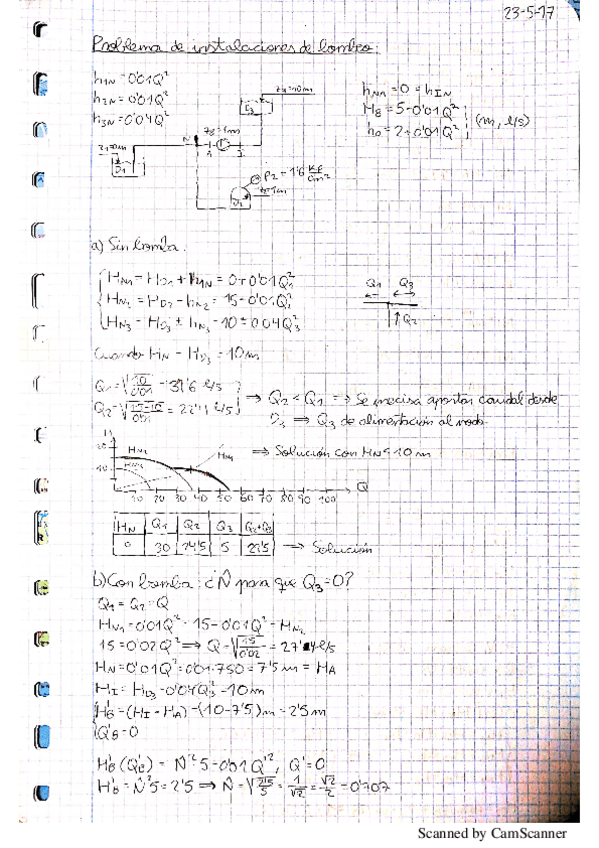 23-5-17
Problema de instalaciones de bombeo:
h1N = 0'01Q²
h2N = 0'01Q²
h3N = 0'04Q²
z3=10m
hNA = 0 = hIN
HB = 5-0'01Q²
h0 = 2+0'01Q²
(m, l/s)
zB=1m
z1=0m
N
D1
P2=1'6 Kg/cm²
a) Sin bomba:
HN1 = HD1 + h1N = 0+0'01Q1²
HN2 = HD2 - hN2 = 15-0'01Q2²
HN3 = HD3 ± hN3 = 10±0'04Q3²
Q1 Q3
↑Q2
Cuando HN = HD3 = 10m
Q1=√(10/0'01) = 31'6 l/s
Q2=√((15-10)/0'01) = 22'41 l/s
⇒ Q2 < Q1 ⇒ Se precisa aportar caudal desde
D3 ⇒ Q3 de alimentación al nodo
⇒ Solución con HN<10m
10 20 30 40 50 60 70 80 90 100 Q
HN Q1 Q2 Q3 Q2+Q3
30 24'5 5 → Solución
b) Con bomba: ¿N̂ para que Q3=0?
Q1 = Q2 = Q
HN1 = 0'01Q² = 15-0'01Q² = HN2
15 = 0'02Q² ⇒ Q=√(15/0'02) = 27'4 l/s
HN = 0'01Q² = 0'01·750 = 7'5m = HA
HI = HD3 - 0'04Q3² = 10m
H'B = (HI - HA) = (10-7'5)m = 2'5m
Q'B = 0
H'B (Q'B) = N̂² 5-0'01Q'², Q'=0
H'B = N̂² 5 = 2'5 ⇒ N̂ = √(2'5/5) = 1/√2 = √2/2 = 0'707
Scanned by CamScanner